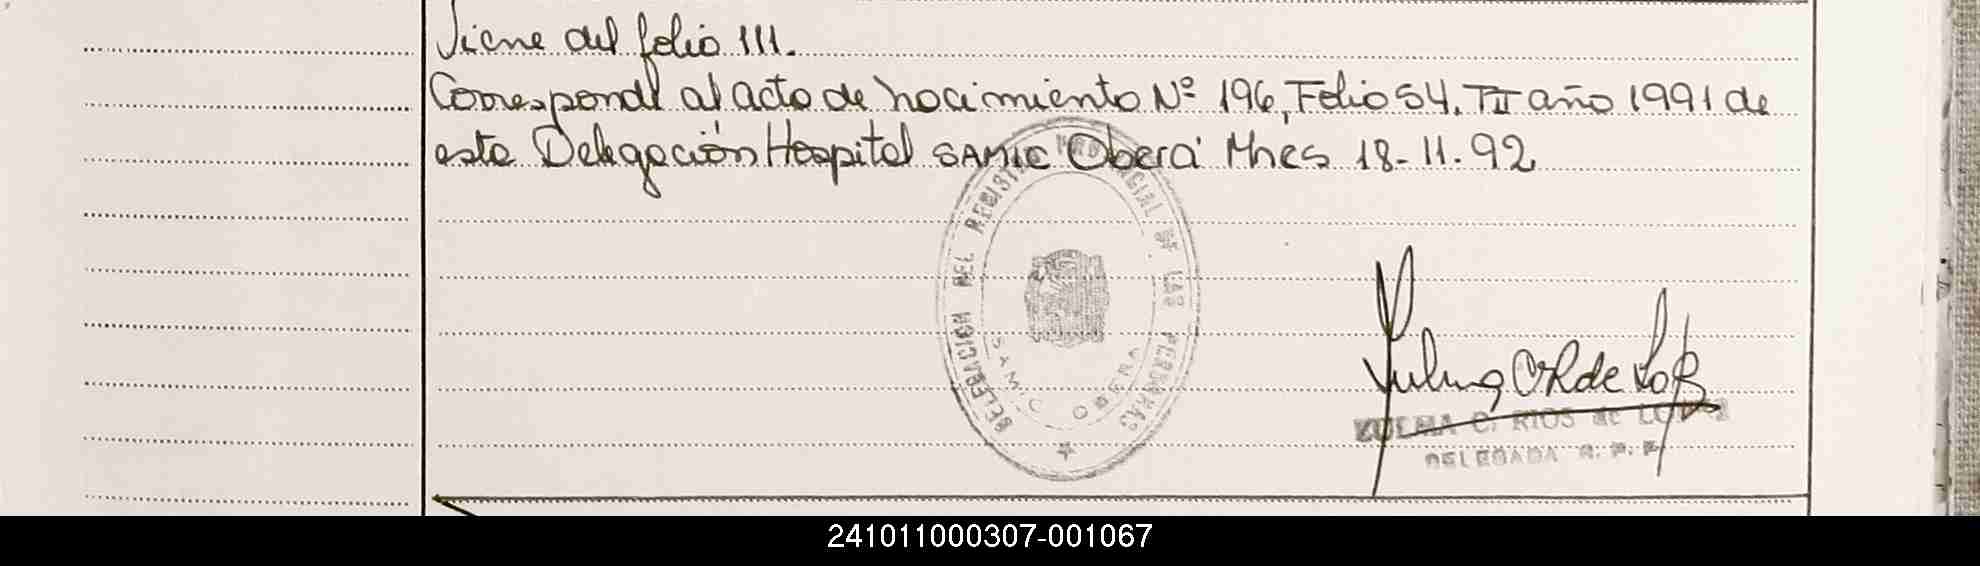 Viene del folio 111.
Corresponde al acta de nacimiento Nº 196, Folio 54. TII año 1991 de
esta Delegación Hospital SAMIC Oberá Mnes 18-11-92
DELEGACION DEL REGISTRO PROVINCIAL DE LAS PERSONAS
SAMIC OBERA
ZULMA C. RIOS de LOPEZ
DELEGADA R. P. P.
241011000307-001067